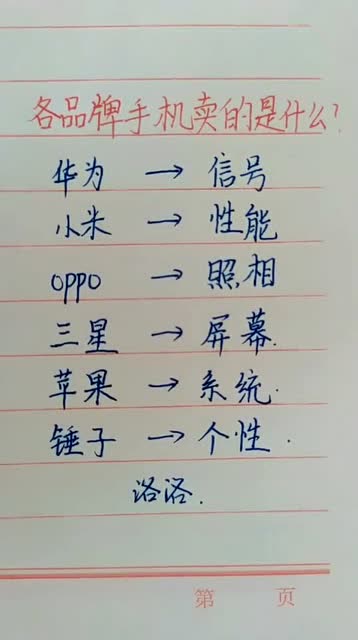 各品牌手机卖的是什么?
华为 → 信号
小米 → 性能
oppo → 照相
三星 → 屏幕.
苹果 → 系统.
锤子 → 个性.
洛洛.
第 页